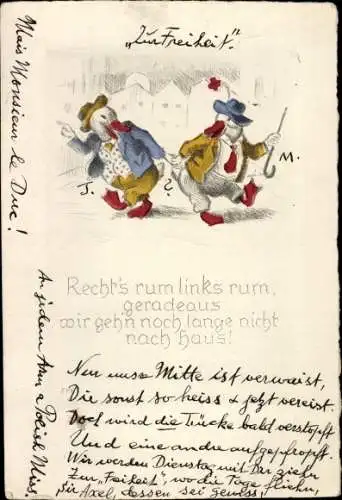 „Zur Freiheit."
Mais Monsieur le Duc!
J. 2. M.
Recht's rum links rum,
geradeaus
wir geh'n noch lange nicht
nach Haus!
An jedem Arm a
Nur unsre Mitte ist verwaist,
Die sonst so heiss & jetzt vereist.
Doch wird die Lücke bald verstopft
Und eine andre aufgepfropft.
Wir werden Dienstag mit Dir ziehn
Zur „Freiheit", wo die Tage fliehn
Sir Axel, dessen sei gewiss!